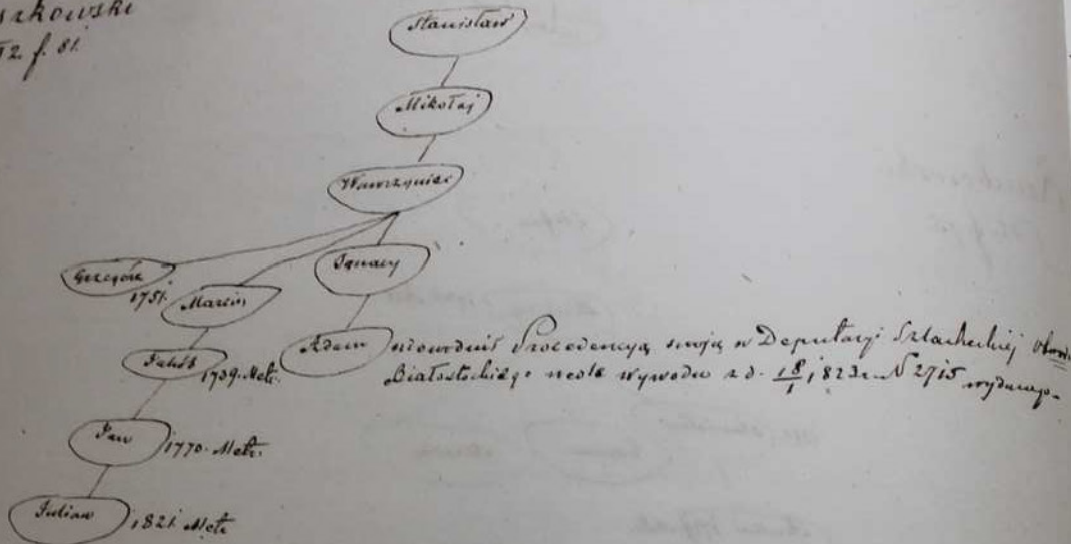 szkowski
f. 81.
Stanisław
Mikołaj
Wawrzyniec
Grzegórz
1751.
Marcin
Ignacy
Jakób
1739. Metr.
Adam
udowodnił Procedencyą swoją w Deputacji Szlacheckiej
Białostockiego wedle wywodu z d. 18/1 1823 r. N 2715 wydanego.
Jan
1770. Metr.
Julian
1821. Metr